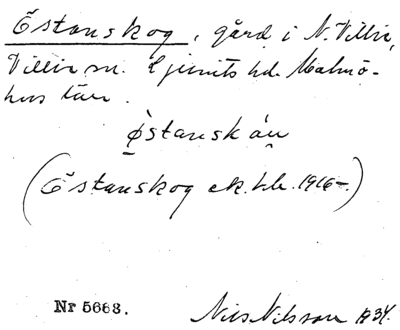 Östanskog, gård i N. Villie,
Villie sn. Ljunits hd. Malmö-
hus län.
östanskåu
(Östanskog ek. bl. 1916-.)
Nr 5663. Nils Nilsson 1934.